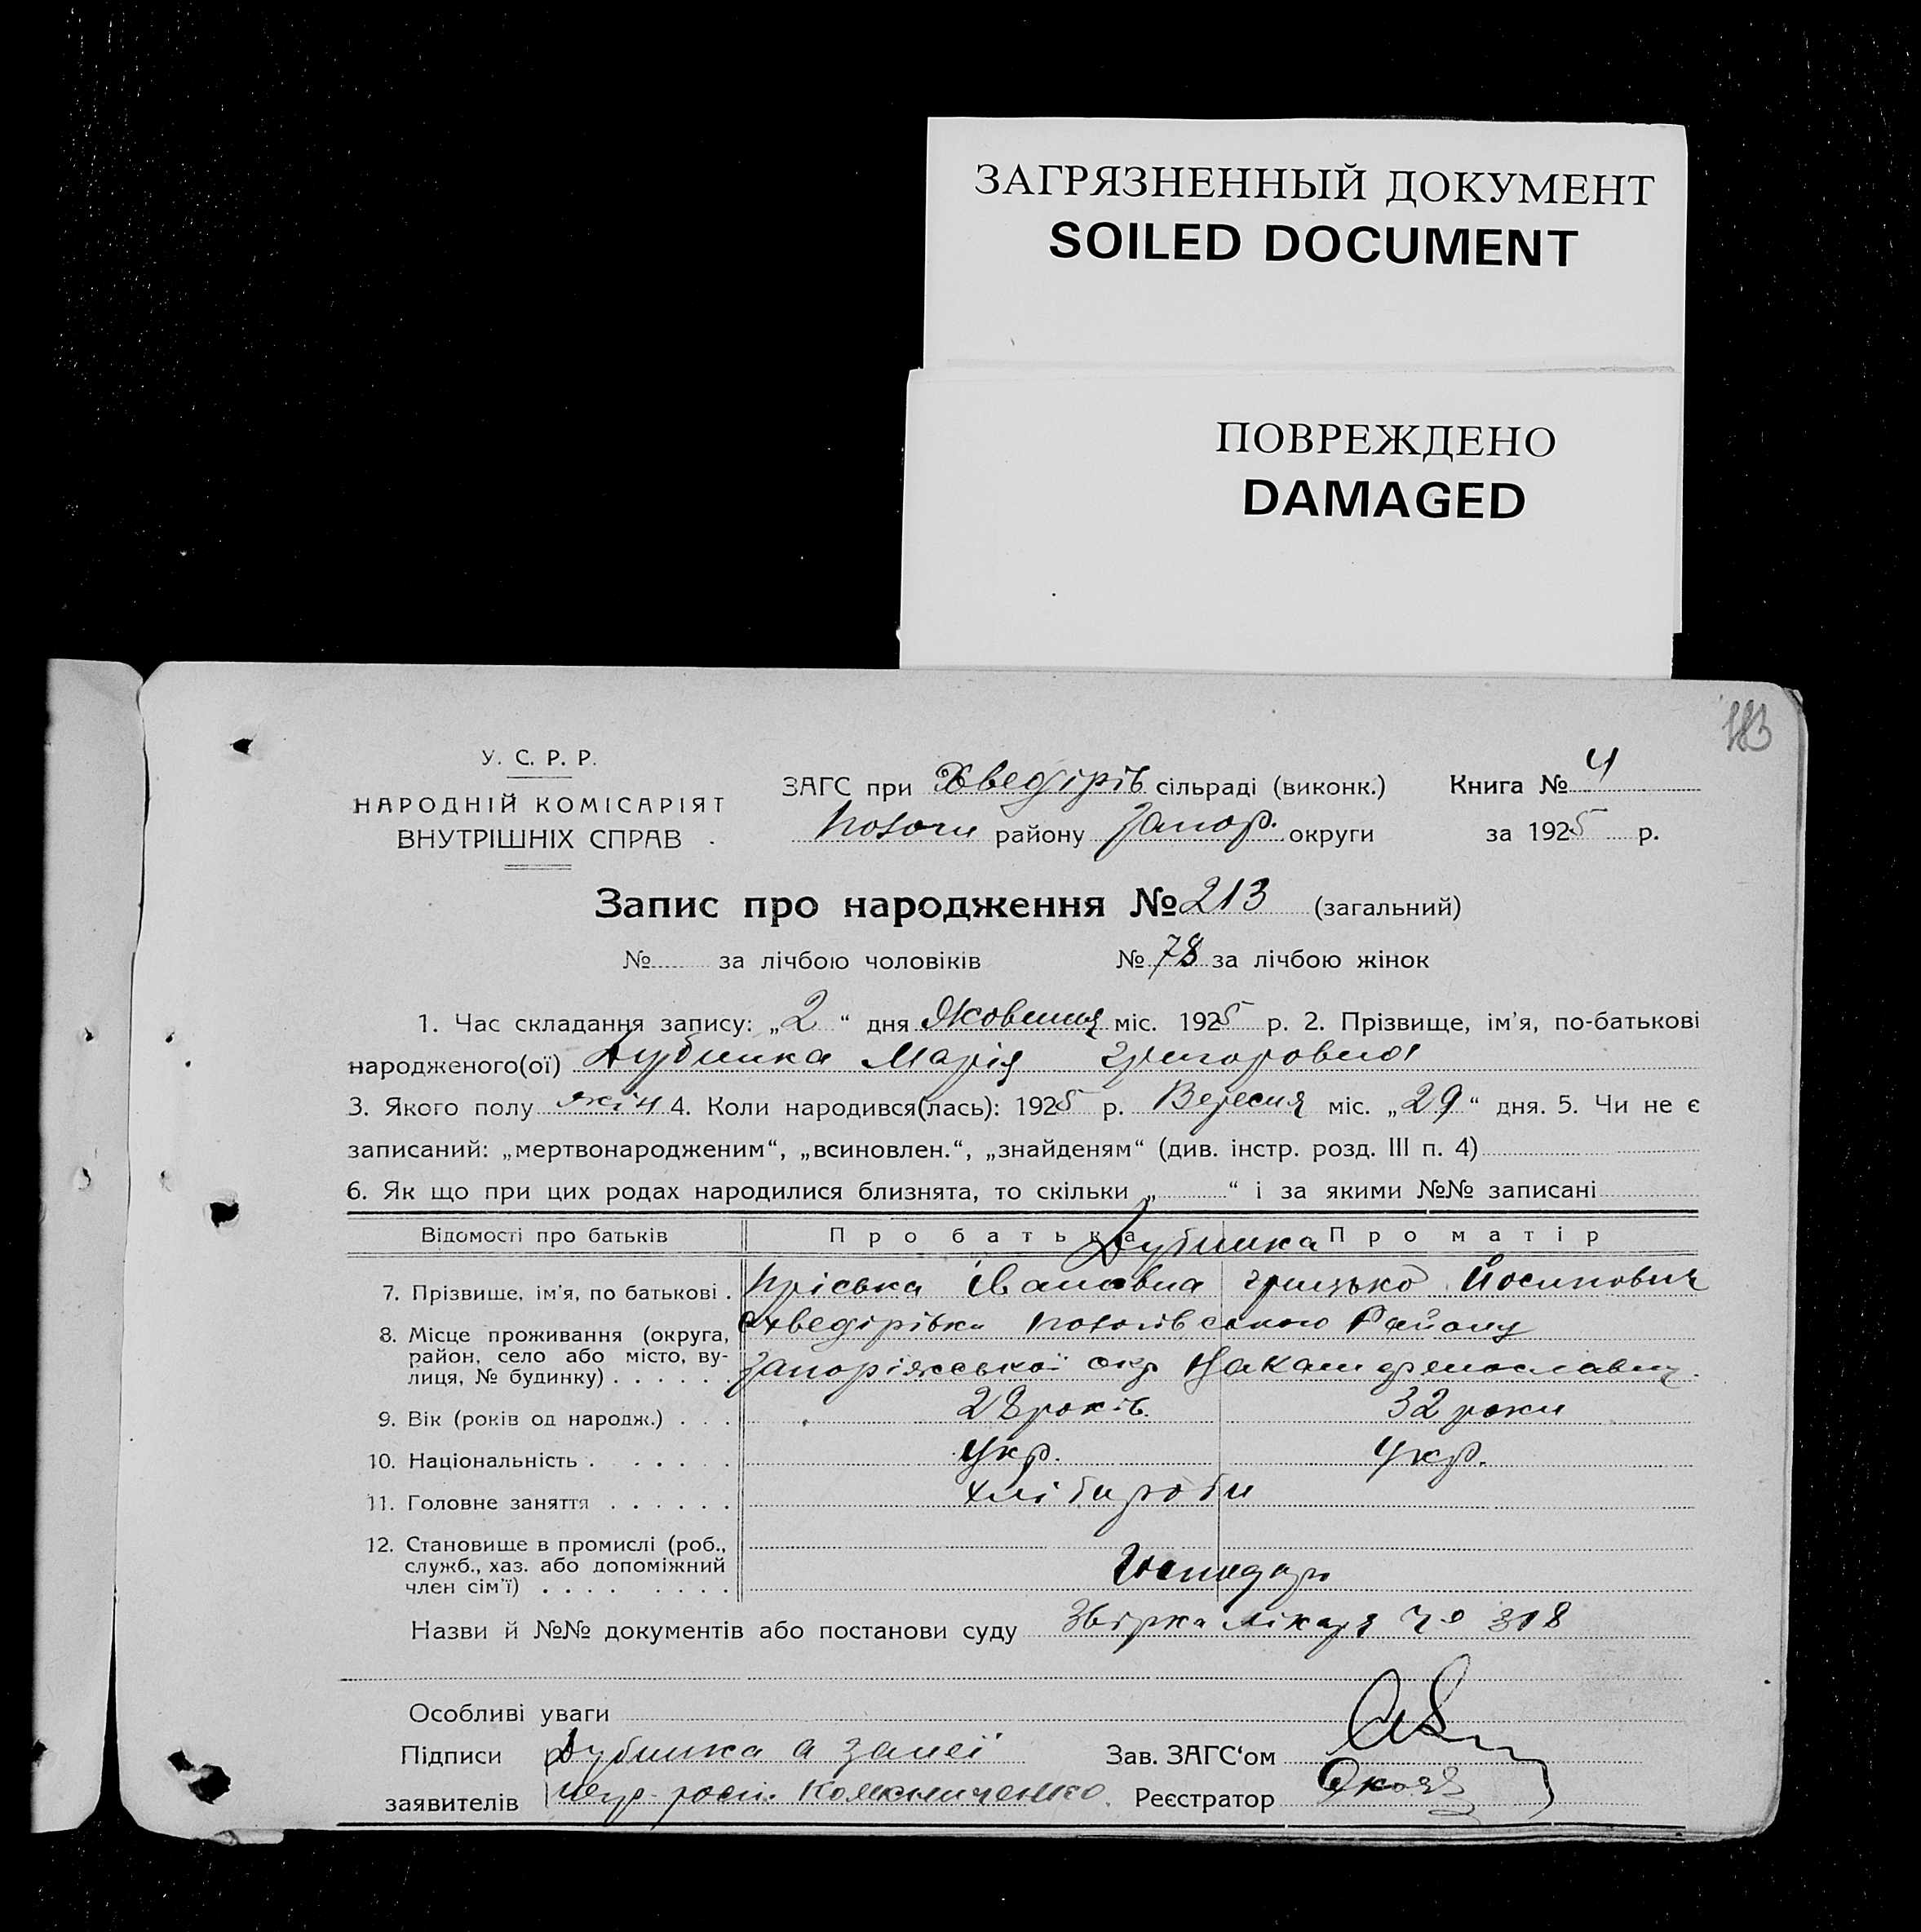 ЗАГРЯЗНЕННЫЙ ДОКУМЕНТ
SOILED DOCUMENT
ПОВРЕЖДЕНО
DAMAGED
183
У. С. Р. Р.
НАРОДНІЙ КОМІСАРІЯТ
ВНУТРІШНІХ СПРАВ
ЗАГС при Хведірів сільраді (виконк.) Книга № 4
району Запор. округи за 1925 р.
Запис про народження № 213 (загальний)
№ за лічбою чоловіків № 78 за лічбою жінок
1. Час складання запису: „2“ дня Жовтня міс. 1925 р. 2. Прізвище, ім'я, по-батькові
народженого(ої) Дубинка Марія Григоровна
3. Якого полу жін 4. Коли народився(лась): 1925 р. Вересня міс. „29“ дня. 5. Чи не є
записаний: „мертвонародженим“, „всиновлен.“, „знайденям“ (див. інстр. розд. III п. 4)
6. Як що при цих родах народилися близнята, то скільки „ “ і за якими №№ записані
Відомості про батьків Про батька Про матір
Дубинка
7. Прізвище, ім'я, по батькові . Пріська Івановна Грицько Йосипович
8. Місце проживання (округа, район, село або місто, вулиця, № будинку) . . . . . . Хведірівка Району
Запоріжської окр
9. Вік (років од народж.) . . . 28 років. 32 роки
10. Національність . . . . . . Укр. Укр.
11. Головне заняття . . . . . . хлібороби
12. Становище в промислі (роб., служб., хаз. або допоміжний член сім'ї) . . . . . . . . Господар
Назви й №№ документів або постанови суду лікаря № 318
Особливі уваги
Підписи Дубинка а занеї Зав. ЗАГС'ом
заявителів Реєстратор